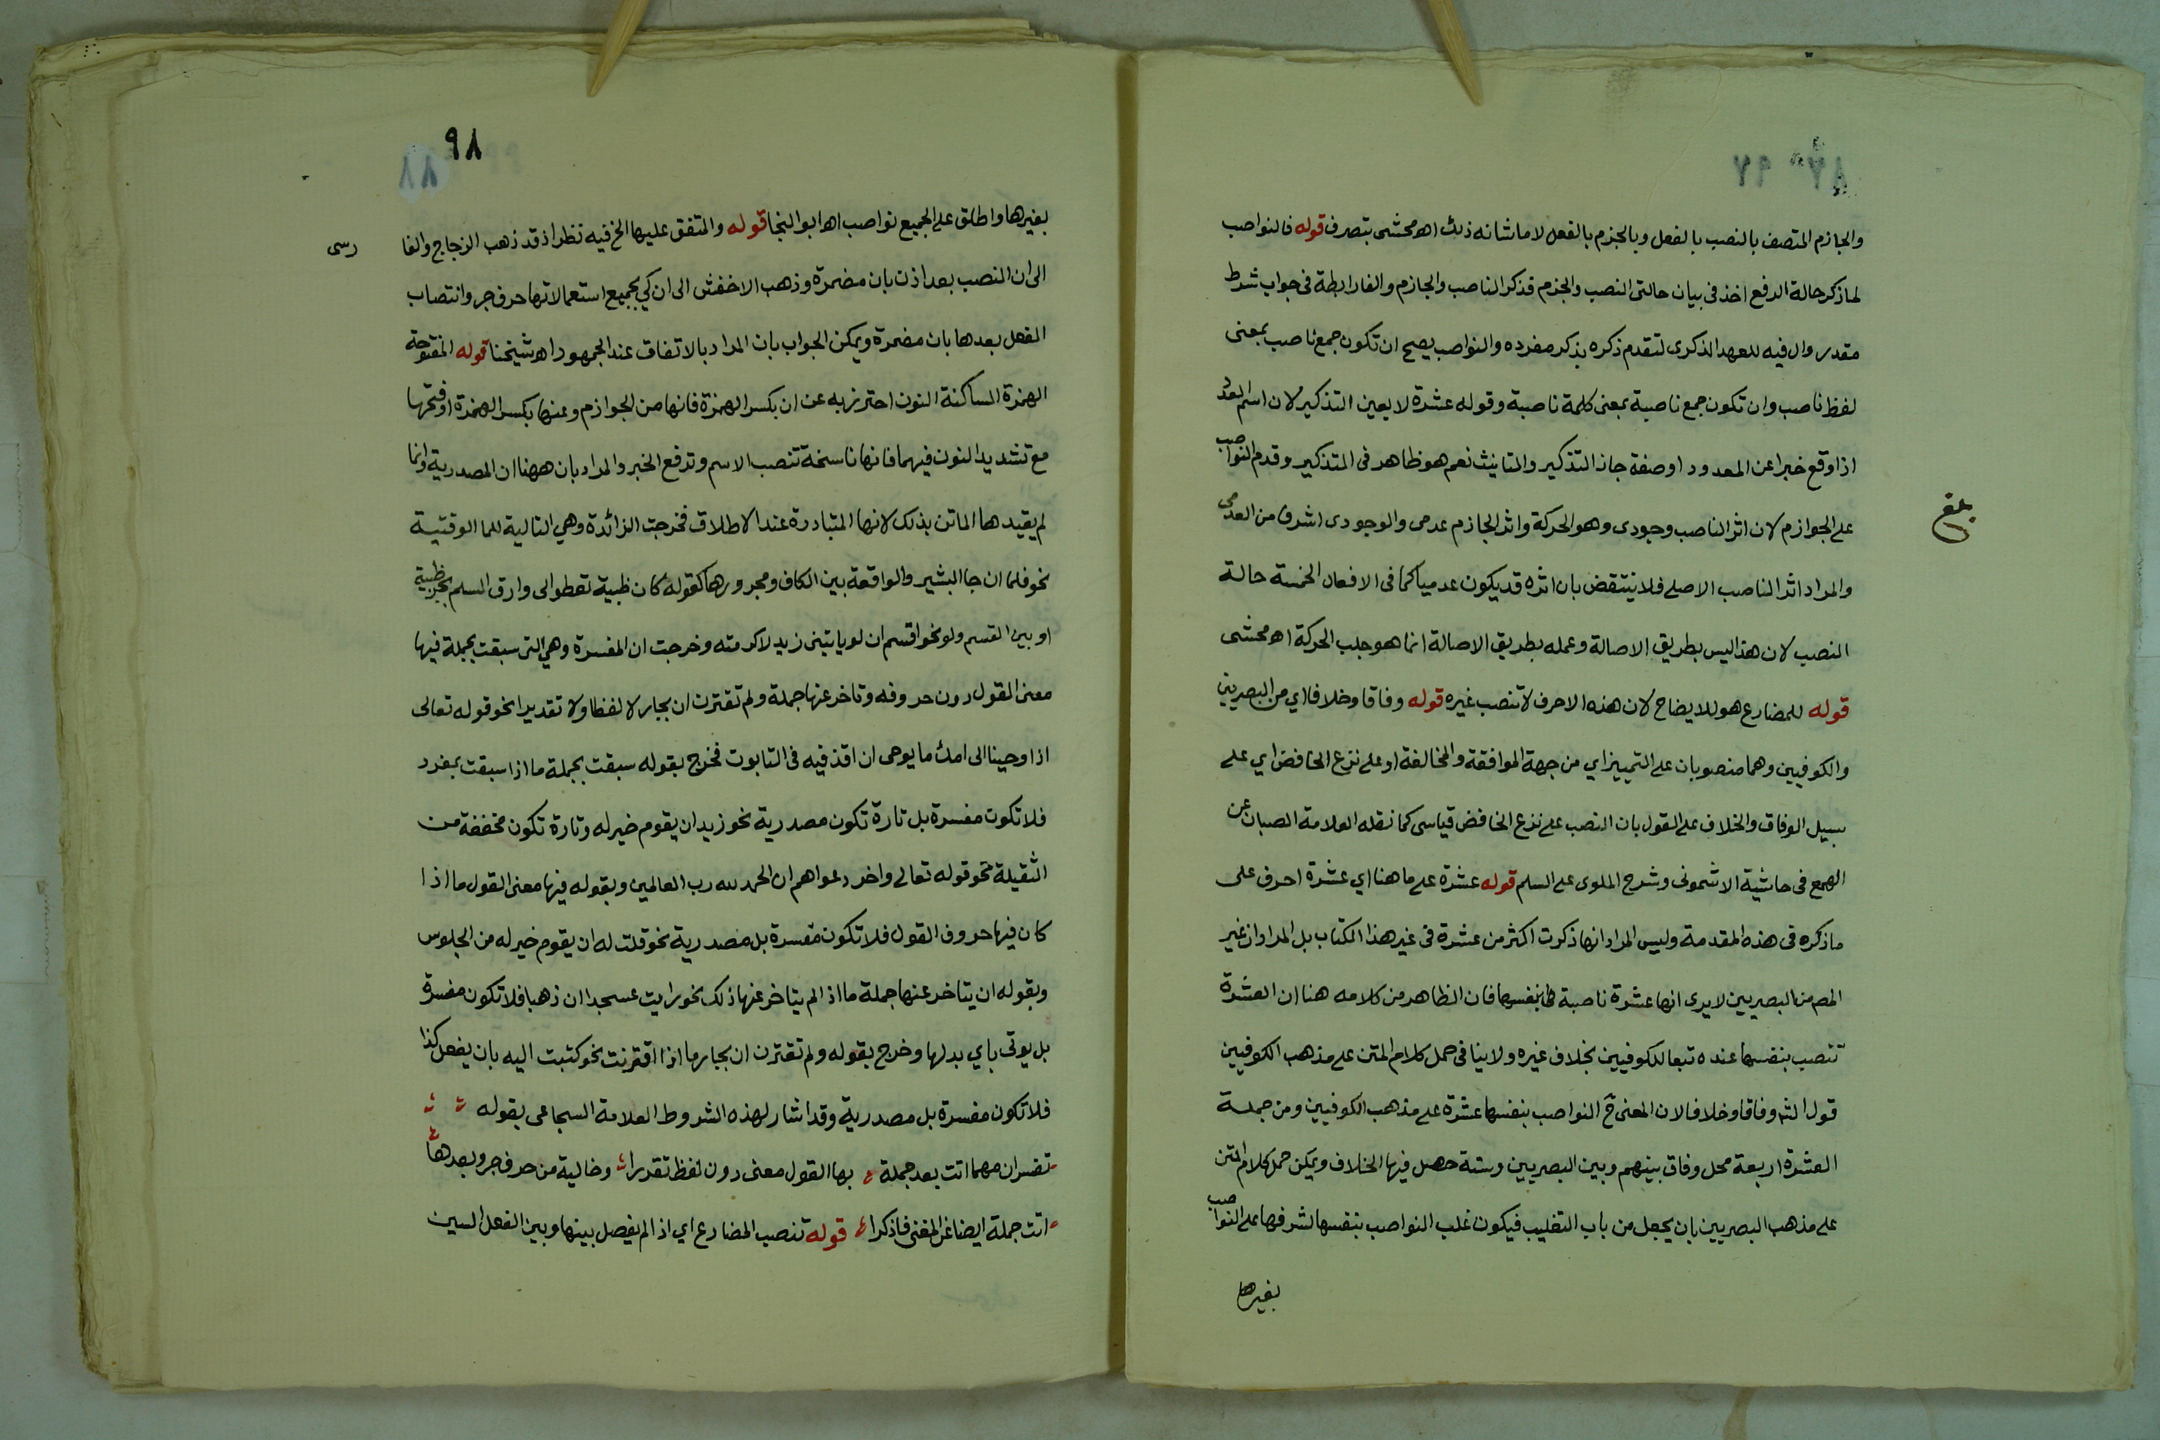 والجازم المتصف بالنصب بالفعل وبالجزم بالفعل لا ما شانه ذلك اه محشى بتصرف قوله فالنواصب
لما ذكر حالة الرفع اخذ فى بيان حالتى النصب والجزم فذكر الناصب والجازم والفا رابطة فى جواب شرط
مقدر وال فيه للعهد الذكرى لتقدم ذكره بذكر مفرده والنواصب يصح ان تكون جمع ناصب بمعنى
لفظ ناصب وان تكون جمع ناصبة بمعنى كلمة ناصبة وقوله عشرة لا يعين التذكير لان اسم العدد
اذا وقع خبرا عن المعدود او صفة جاز التذكير والتانيث نعم هو ظاهر فى التذكير وقدم النواصب
على الجوازم لان اثر الناصب وجودى وهو الحركة واثر الجازم عدمى والوجودى اشرف من العدمى
بلغ
والمراد اثر الناصب الاصلى فلا ينتقض بان اثره قد يكون عدميا كما فى الافعال الخمسة حالة
النصب لان هذا ليس بطريق الاصالة وعمله بطريق الاصالة انما هو جلب الحركة اه محشى
قوله للمضارع هو للايضاح لان هذه الاحرف لا تنصب غيره قوله وفاقا وخلافا اي من البصريين
والكوفيين وهما منصوبان على التمييز اي من جهة الموافقة والمخالفة او على نزع الخافض اي على
سبيل الوفاق والخلاف على القول بان النصب على نزع الخافض قياسى كما نقله العلامة الصبان عن
الهمع فى حاشية الاشمونى وشرح الملوى على السلم قوله عشرة على ما هنا اي عشرة احرف على
ما ذكره فى هذه المقدمة وليس المراد انها ذكرت اكثر من عشرة فى غير هذا الكتاب بل المراد ان غير
المص من البصريين لا يرى انها عشرة ناصبة بنفسها فان الظاهر من كلامه هنا ان العشرة
تنصب بنفسها عنده تبعا للكوفيين بخلاف غيره ولا ينافى حمل كلام المتن على مذهب الكوفيين
قول الشم وفاقا وخلافا لان المعنى ح النواصب بنفسها عشرة على مذهب الكوفيين ومن جملة
العشرة اربعة محل وفاق بينهم وبين البصريين وستة حصل فيها الخلاف ويمكن حمل كلام المتن
على مذهب البصريين بان يجعل من باب التغليب فيكون غلب النواصب بنفسها لشرفها على النواصب
بغيرها
٩٨
٨٨
بغيرها واطلق على الجميع نواصب اه ابو النجا قوله والمتفق عليها الخ فيه نظر اذ قد ذهب الزجاج والفا
رسى
الى ان النصب بعد اذن بان مضمرة وذهب الاخفش الى ان كي بجميع استعمالاتها حرف جر وانتصاب
الفعل بعدها بان مضمرة ويمكن الجواب بان المراد بالاتفاق عند الجمهور اه شيخنا قوله المفتوحة
الهمزة الساكنة النون احترز به عن ان بكسر الهمزة فانها من الجوازم وعنها بكسر الهمزة او فتحها
مع تشديد النون فيهما فانها ناسخة تنصب الاسم وترفع الخبر والمراد بان ههنا ان المصدرية وانما
لم يقيدها الماتن بذلك لانها المتبادرة عند الاطلاق فخرجت الزائدة وهي التالية للما الوقتية
نحو فلما ان جا البشير والواقعة بين الكاف ومجرورها كقوله كان ظبية تعطوا الى وارق السلم بجر ظبية
او بين القسم ولو نحو اقسم ان لو ياتينى زيد لاكرمته وخرجت ان المفسرة وهي التى سبقت بجملة فيها
معنى القول دون حروفه وتاخر عنها جملة ولم تقترن ان بجار لا لفظا ولا تقديرا نحو قوله تعالى
اذ اوحينا الى امك ما يوحى ان اقذفيه فى التابوت فخرج بقوله سبقت بجملة ما اذا سبقت بمفرد
فلا تكون مفسرة بل تارة تكون مصدرية نحو زيد ان يقوم خير له وتارة تكون مخففة من
الثقيلة نحو قوله تعالى واخر دعواهم ان الحمد لله رب العالمين وبقوله فيها معنى القول ما اذا
كان فيها حروف القول فلا تكون مفسرة بل مصدرية نحو قلت له ان يقوم خير له من الجلوس
وبقوله ان يتاخر عنها جملة ما اذا لم يتاخر عنها ذلك نحو رايت عسجدا ان ذهبا فلا تكون مفسرة
بل يوتى باي بدلها وخرج بقوله ولم تقترن ان بجار ما اذا اقترنت نحو كتبت اليه بان يفعل كذا
فلا تكون مفسرة بل مصدرية وقد اشار لهذه الشروط العلامة السجاعى بقوله
تفسر ان مهما اتت بعد جملة بها القول معنى دون لفظ تقدرا وخالية من حرف جر وبعدها
اتت جملة ايضا عن المغنى فاذكرا قوله تنصب المضارع اي اذا لم يفصل بينها وبين الفعل السين